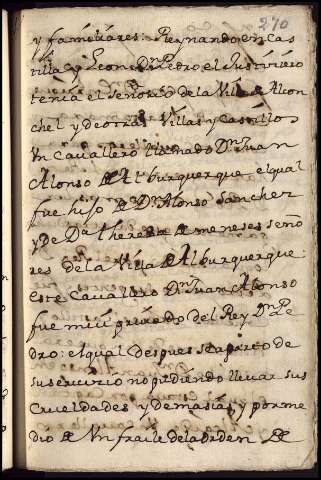 270
y familiares. Reynando en Cas
tilla y Leon Dn Pedro el Justiciero
tenia el señorio de la Villa de Alcon
chel y de otras Villas y Castillos
Un Cavallero llamado Dn Juan
Alonso de Alburquerque el qual
fue hijo de Dn Alonso Sanchez
y de Da theresa de meneses seño
res de la Villa de Alburquerque:
este Cavallero Dn Juan Alonso
fue mui privado del Rey Dn Pe
dro: el qual despues se aparto de
su servicio no pudiendo llevar sus
Crueldades y demasias, y por me
dio de Un fraile de la orden de